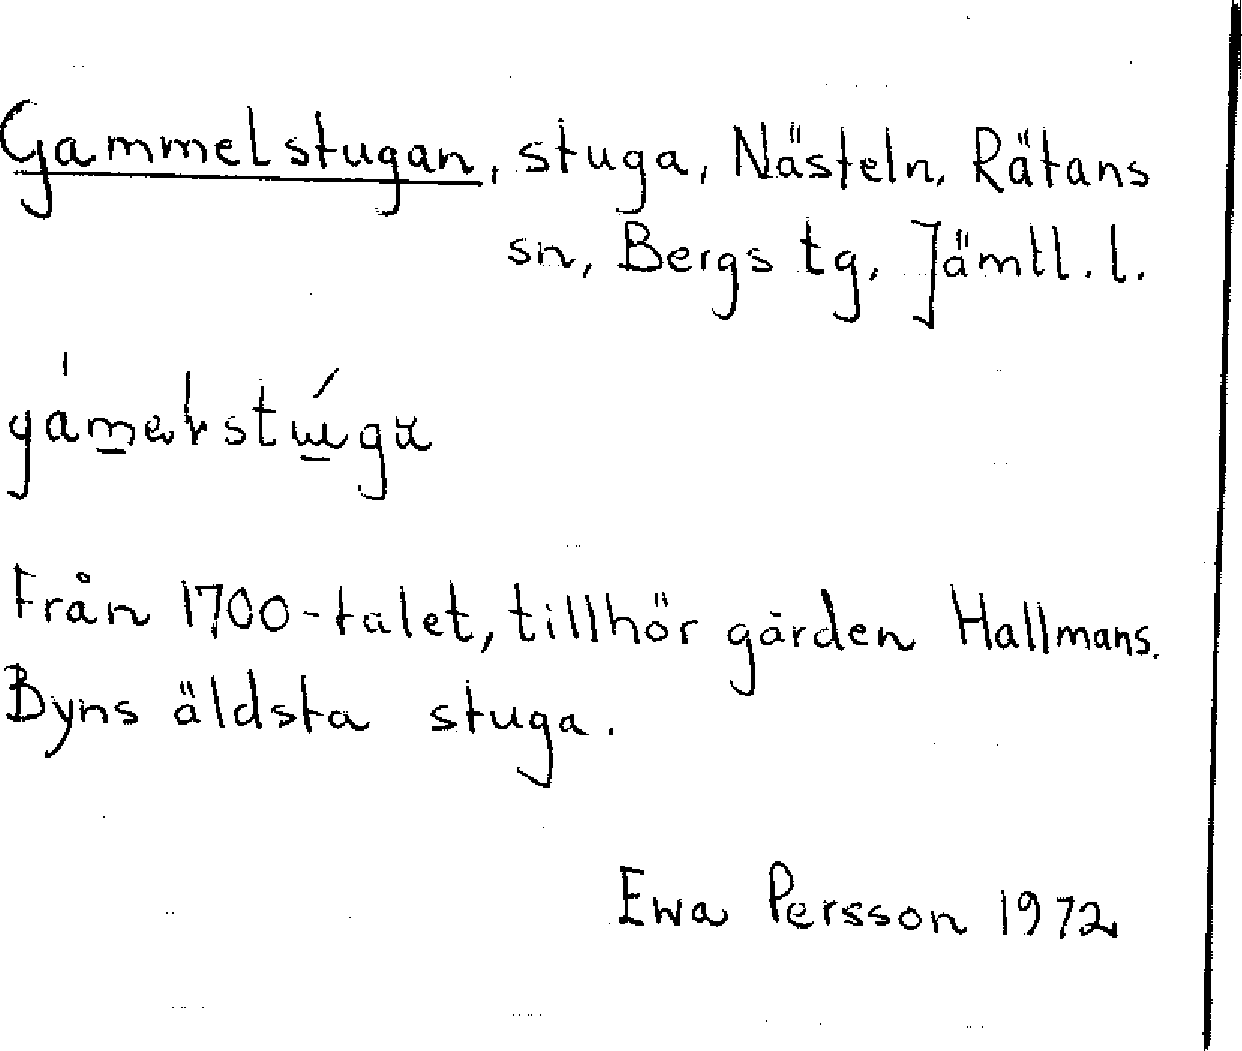 Gammelstugan, stuga, Nästeln, Rätans
sn, Bergs tg, Jämtl. l.
Från 1700-talet, tillhör gården Hallmans.
Byns äldsta stuga.
Ewa Persson 1972